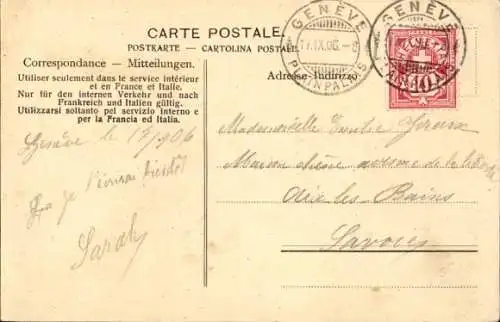 CARTE POSTALE.
POSTKARTE - CARTOLINA POSTALE
Correspondance - Mitteilungen.
Utiliser seulement dans le service intérieur
et en France et Italie.
Nur für den internen Verkehr und nach
Frankreich und Italien gültig.
Utilizzarsi soltanto pel servizio interno e
per la Francia ed Italia.
Genève le 1906
je bientôt
Sarah
GENÈVE
11.IX.06.-6
PLAINPALAIS
GENÈVE
HELVETIA
10
Adresse-Indirizzo.
Mademoiselle Emilie
Maison avenue de la
Aix les Bains
Savoie